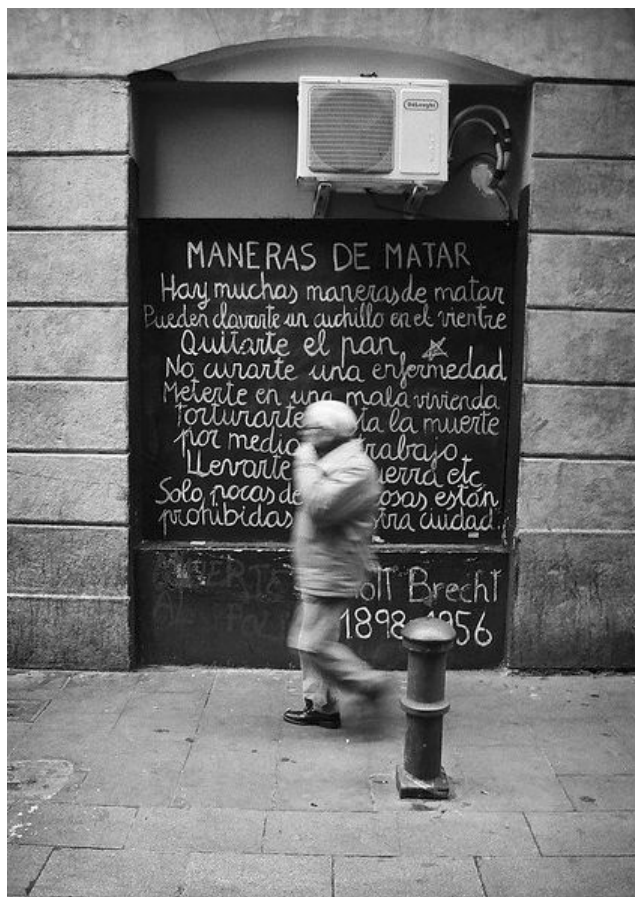 DeLonghi
MANERAS DE MATAR
Hay muchas maneras de matar
Pueden clavarte un cuchillo en el vientre
Quitarte el pan
No curarte una enfermedad
Meterte en una mala vivienda
Torturarte ta la muerte
por medio trabajo
Llevarte erra etc
Solo pocas de osas están
prohibidas stra ciudad.
olt Brecht
1898 1956